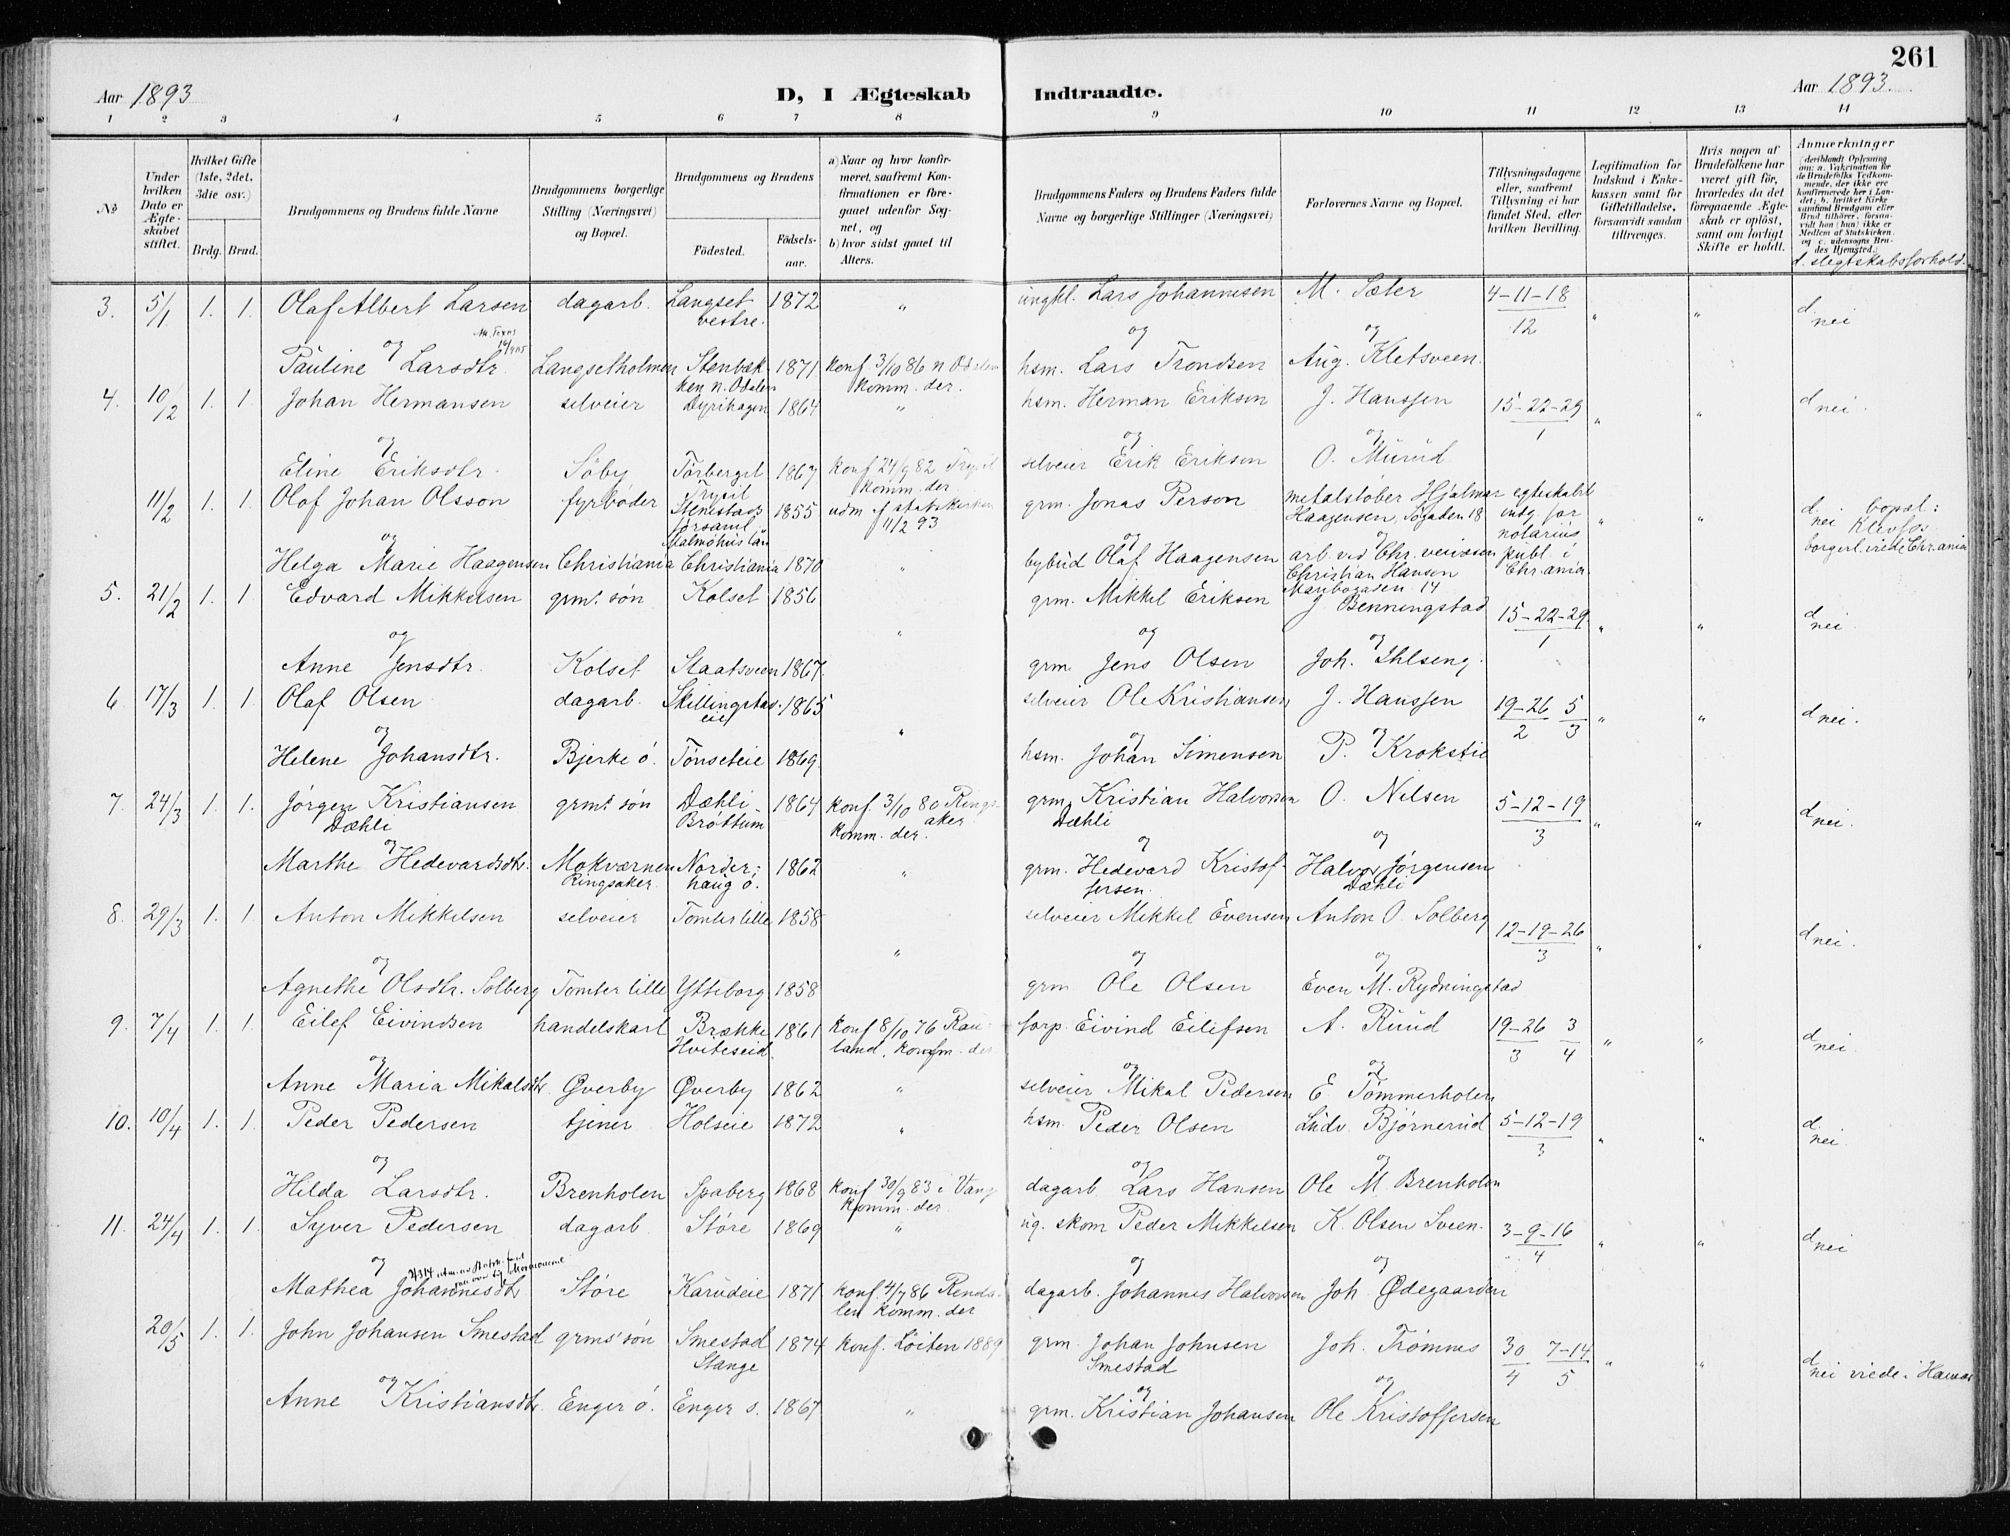 261
Aar 1893 D, I Ægteskab Indtraadte. Aar 1893.
1 2 3 4 5 6 7 8 9 10 11 12 13 14
No
Under hvilken Dato er Ægteskabet stiftet.
Hvilket Gifte (1ste, 2det, 3die osv.)
Brdg. Brud.
Brudgommens og Brudens fulde Navne
Brudgommens borgerlige Stilling (Næringsvei) og Bopæl.
Brudgommens og Brudens
Födested. Födselsaar.
a) Naar og hvor konfirmeret, saafremt Konfirmationen er foregaaet udenfor Sognet, og
b) hvor sidst gaaet til Alters.
Brudgommens Faders og Brudens Faders fulde Navne og borgerlige Stillinger (Næringsvei)
Forlovernes Navne og Bopæl.
Tillysningsdagene eller, saafremt Tillysning ei har fundet Sted, efter hvilken Bevilling.
Legitimation for Indskud i Enkekassen samt for Giftetilladelse, forsaavidt saadan tiltrænges.
Hvis nogen af Brudefolkene har været gift för, hvorledes da det foregaaende Ægteskab er oplöst, samt om lovligt Skifte er holdt.
Anmærkninger (deriblandt Oplysning om: a. Vakcination for de Brudefolks Vedkommende, der ikke ere konfirmerede her i Landet; b. hvilket Kirkesamfund Brudgom eller Brud tilhörer, forsaavidt han (hun) ikke er Medlem af Statskirken, og c. udensogns Brudes Hjemsted.)
d. slegtskabsforhold.
3. 5/1 1. 1. Olaf Albert Larsen dagarb. Langset vestre. 1872 " ungkl. Lars Johannesen M. Sæter 4-11-18/12 " " d nei
og og og
Pauline Larsdtr. Langsetholmen Stenbækken N. Odalen 1871 konf 3/10 86 N Odalen komm. der. hsm. Lars Trondsen Aug. Kletsveen
4. 10/2 1. 1. Johan Hermansen selveier Dyrihagen 1864 " hsm. Herman Eriksen J. Hanssen 15-22-29/1 " " d nei.
og og og
Eline Eriksdtr. Söby Törberget Trysil 1867 konf 24/9 82 Trysil komm. der. selveier Erik Eriksen O. Mürüd
11/2 1. 1. Olof Johan Olsson fyrbøder Stenestads forsaml. Malmöhus län 1855 udm. af statskirken 11/2 93 grm. Jonas Person metalstøber Hjalmar Haagensen, Søgaden 18 egteskabet indg. for notarius publ. i Chr.ania. " " d nei bopæl: Klevfos borgerl. viede Chr.ania
og og og
Helga Marie Haagensen Christiania Christiania 1870 " bybud Olaf Haagensen arb. ved Chr. Christian Hansen Maribogaden 14
5. 21/2 1. 1. Edvard Mikkelsen grms. søn Kolset 1856 " grm. Mikkel Eriksen J Benningstad 15-22-29/1 " " d nei.
og og og
Anne Jensdtr. Kolset Staatsveen 1867. grm. Jens Olsen Joh. Ihlseng.
6. 17/3 1. 1. Olaf Olsen dagarb. Skillingstad eie 1865 " selveier Ole Kristiansen J. Hanssen 19-26/2 5/3 " " d nei.
og og og
Helene Johansdtr. Bjerke ö. Tönseteie 1869. hsm. Johan Simensen P. Krokstie
7. 24/3 1. 1. Jörgen Kristiansen Dæhli grms. søn Dæhli Bröttum 1864 konf. 3/10 80 Ringsaker komm. der. grm. Kristian Halvorsen Dæhli O. Nilsen 5-12-19/3 " " d nei.
og og og
Marthe Hedevardsdtr. Mokværnen Ringsaker. Norderhaug ö. 1862 " grm. Hedevard Kristoffersen. Halvor Jørgensen Dæhli
8. 29/3 1. 1 Anton Mikkelsen selveier Tomter lille 1858 " selveier Mikkel Evensen Anton O. Solberg 12-19-26/3 " " d nei.
og og og
Agnethe Olsdtr. Solberg Tomter lille Ytteborg 1858 grm Ole Olsen Even M. Rydningstad
9. 7/4 1. 1. Eilef Eivindsen handelskarl Brække Hviteseid. 1861 konf 8/10 76 Rauland, komm. der forp. Eivind Eilefsen A. Rüüd 19-26/3 3/4 " " d nei.
og og og
Anne Maria Mikalsdtr. Øverby Øverby 1862 " selveier Mikal Pedersen E. Tømmerholen
10. 10/4 1. 1. Peder Pedersen tjener Holseie 1872 " hsm. Peder Olsen Lüdv. Bjørnerüd 5-12-19/3 " " d nei
og og og
Hilda Larsdtr. Brenholen Spaberg 1868 konf 30/9 83 i Vang komm. der. dagarb. Lars Hansen Ole M. Brenholen
11. 24/4 1. 1. Syver Pedersen dagarb Støre 1869 " ug. skom Peder Mikkelsen K. Olsen Sveen. 3-9-16/4 " " d nei
og og og
Mathea Johannesdtr Støre Karüdeie 1871 konf. 4/7 86 Rendalen komm. der dagarb. Johannes Halvorsen Joh. Ødegaarden
20/5 1. 1. John Johansen Smestad grms' søn Smestad Stange 1874 konf. Löiten 1889 grm. Johan Johnsen Smestad Joh. Trømnes 30/4 7-14/5 " " d nei viede i Hamar
og og og
Anne Kristiansdtr. Enger ö. Enger s. 1867 " grm. Kristian Johansen Ole Kristoffersen